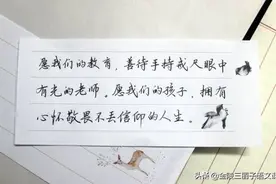 愿我们的教育，善待手持戒尺眼中
有光的老师。愿我们的孩子，拥有
心怀敬畏不丢信仰的人生。
头条@金陵三囡子语文